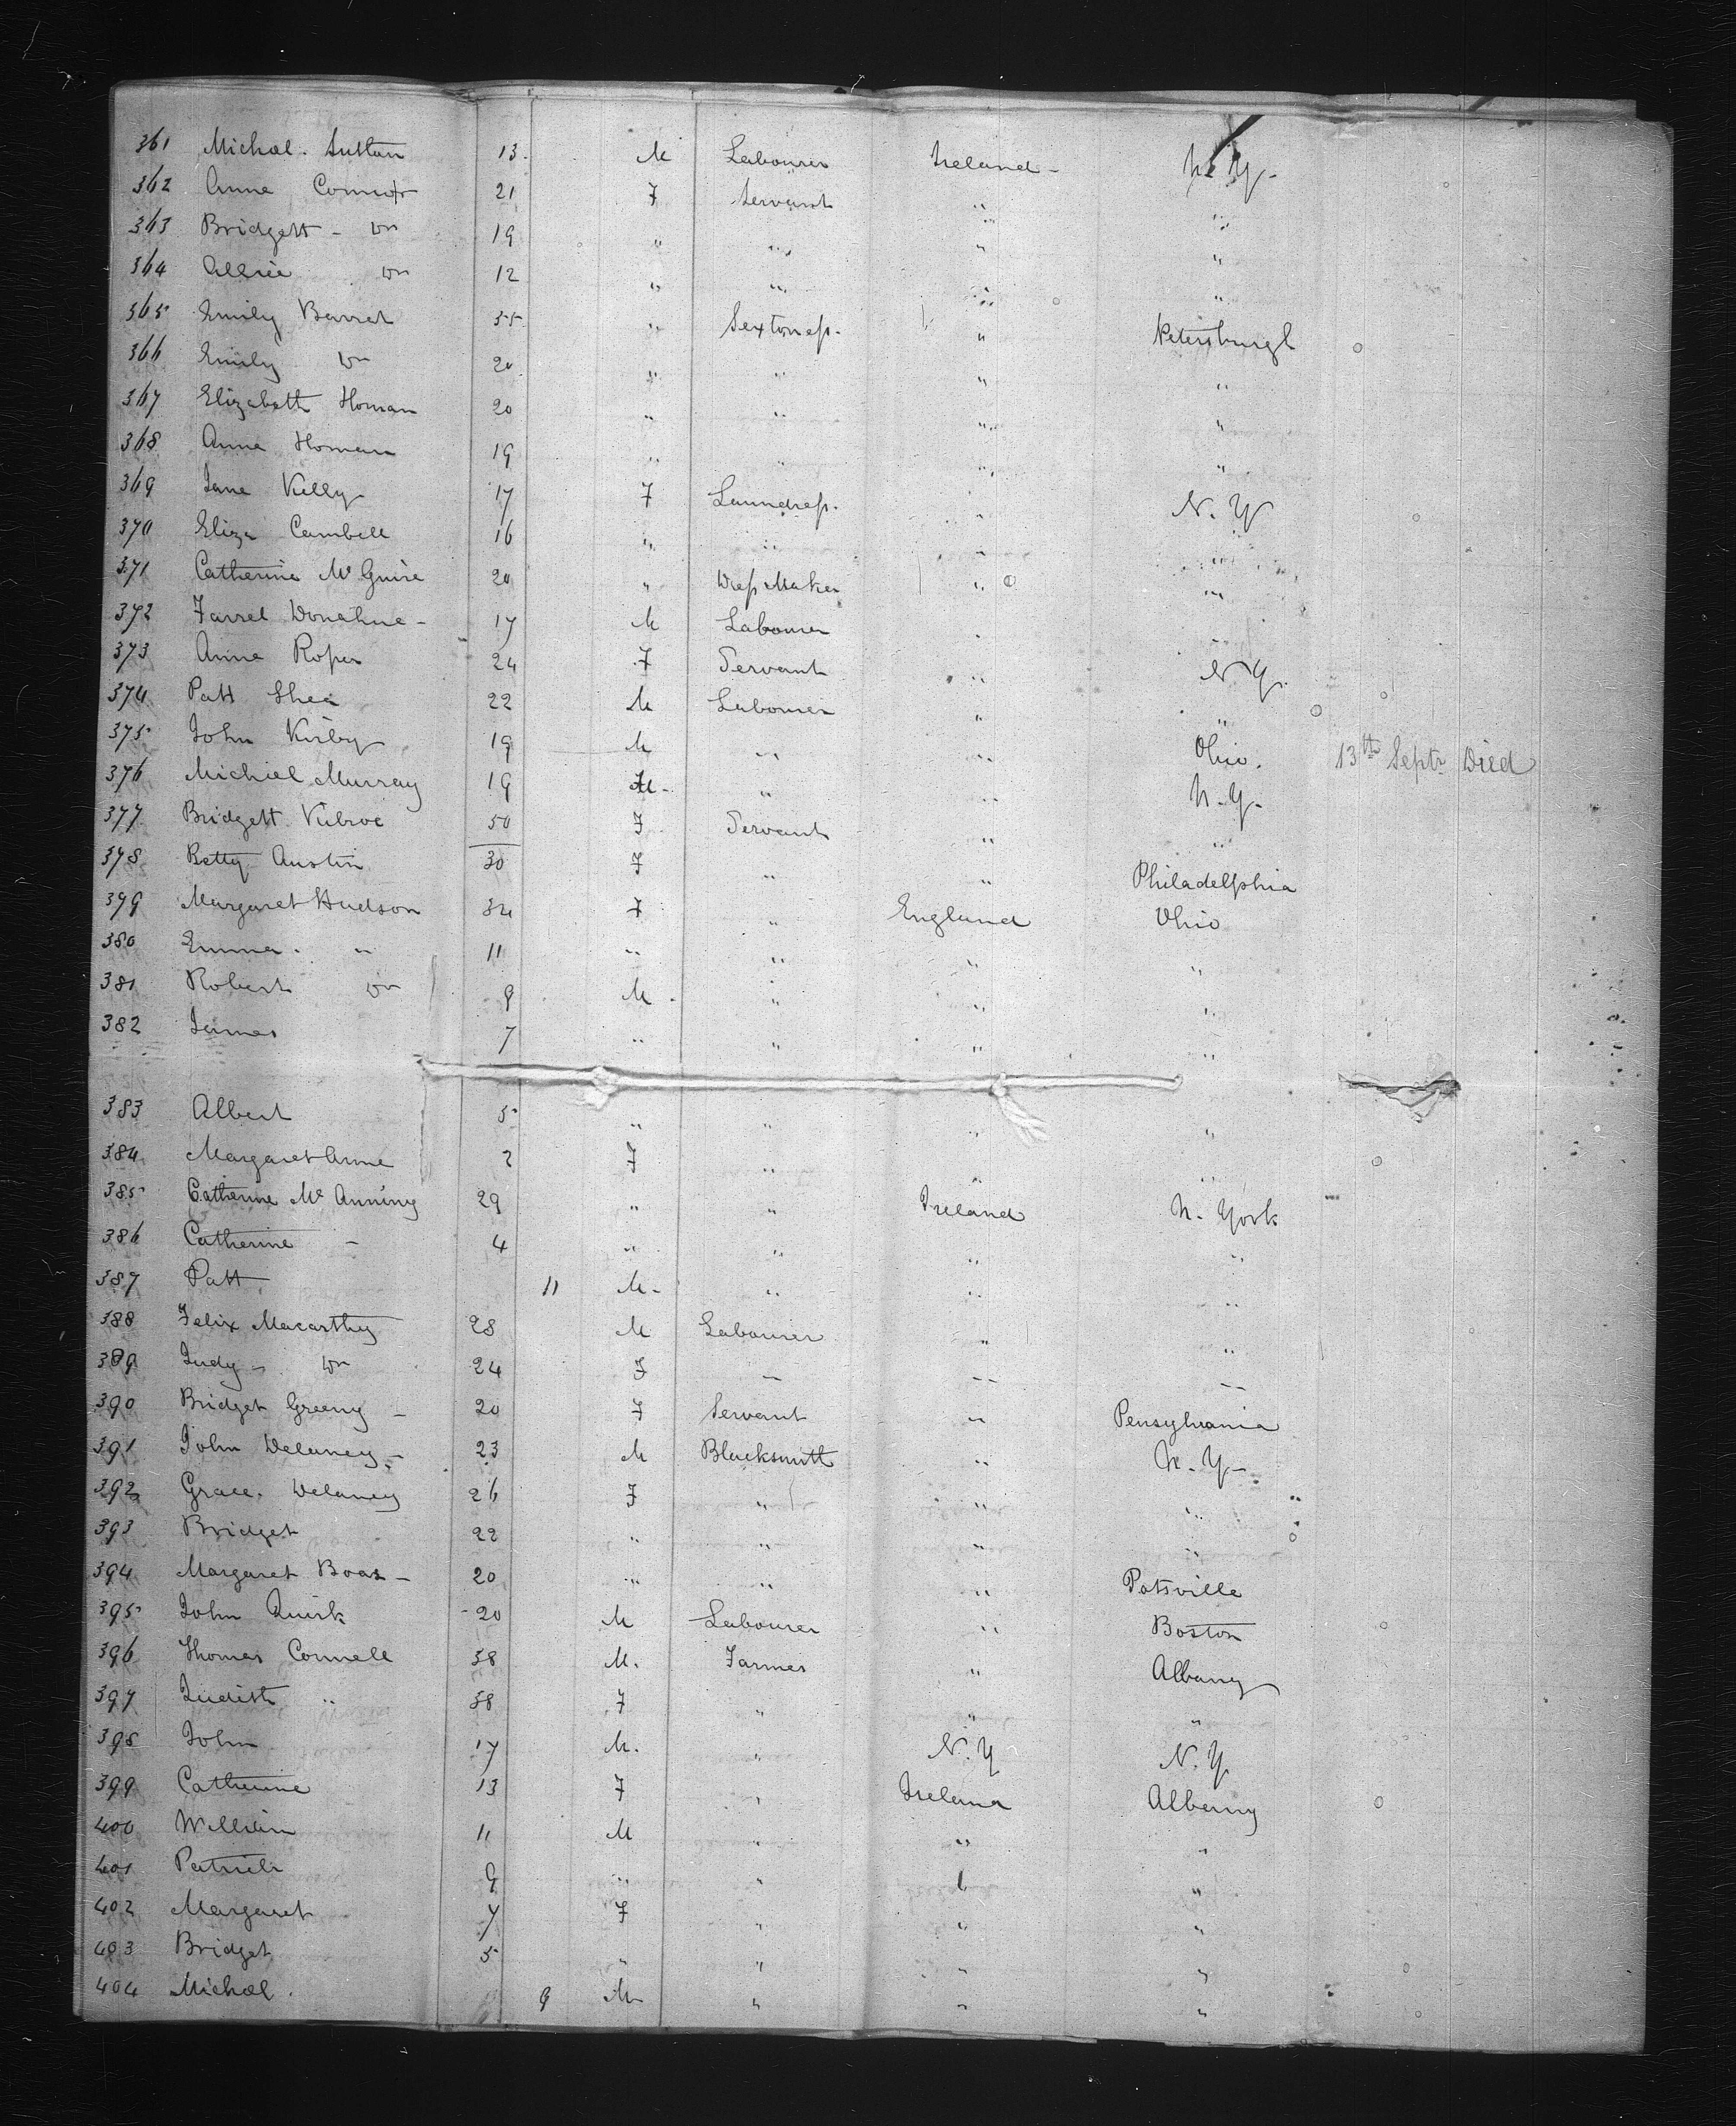 361 Michal. Sutton 13. M Labourer Ireland - N. Y -
362 Anne Connor 21 F Servant " "
363 Bridgett - Do 19 " " " "
364 Allice Do 12 " " " "
365 Emily Barret 35 " " Petersburgh
366 Emily Do 20 " " " "
367 Elizabeth Homan 20 " " " "
368 Anne Homan 19 " " " "
369 Jane Kelly 17 F Laundress. " N. Y
370 Eliza Cambell 16 " " " "
371 Catherine Mc Guire 20 " Dress Maker " "
372 Farrel Donahue - 17 M Labourer " "
373 Anne Roper 24 F Servant " N Y.
374 Patt Shea 22 M Labourer " "
375 John Kirby 19 M " " Ohio. 13th Septr Died
376 Michiel Murray 19 M - " " N. Y -
377 Bridgett Kilroe 50 F Servant " "
378 Betty Austin 30 F " " Philadelphia
379 Margaret Hudson 34 F " England Ohio
380 Emma. " 11 " " " "
381 Robert Do 9 M " " "
382 James 7 " " " "
383 Albert 5 " " " "
384 Margaret Anne 2 F " " "
385 Catherine Mc Anniny 29 " " Ireland N. York
386 Catherine - 4 " " " "
387 Patt 11 M - " " "
388 Felix Macarthy 28 M Labourer " "
389 Judy " Do 24 F " " "
390 Bridget Greeny - 20 F Servant " Pensylvania
391 John Delaney - 23 M Blacksmith " N. Y -
392 Grace. Delaney 26 F " " "
393 Bridget 22 " " " "
394 Margaret Boas - 20 " " " Potsville
395 John Quirk 20 M Labourer " Boston
396 Thomas Connell 38 M. Farmer " Albany
397 Judith " 38 F " " "
398 John 17 M. " N. Y N. Y
399 Catherine 13 F " Ireland Albany
400 William 11 M " " "
401 Patrick 9 " " "
402 Margaret 7 F " " "
403 Bridget 5 " " " "
404 Michal. 9 M " " "